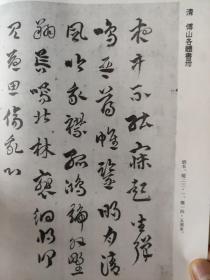 清　傅山各體書冊
夜中不能寐起坐彈
鳴琴薄帷鑒明月清
風吹我襟孤鴻號外野
翔鳥鳴北林徘徊將何
見憂思獨傷心